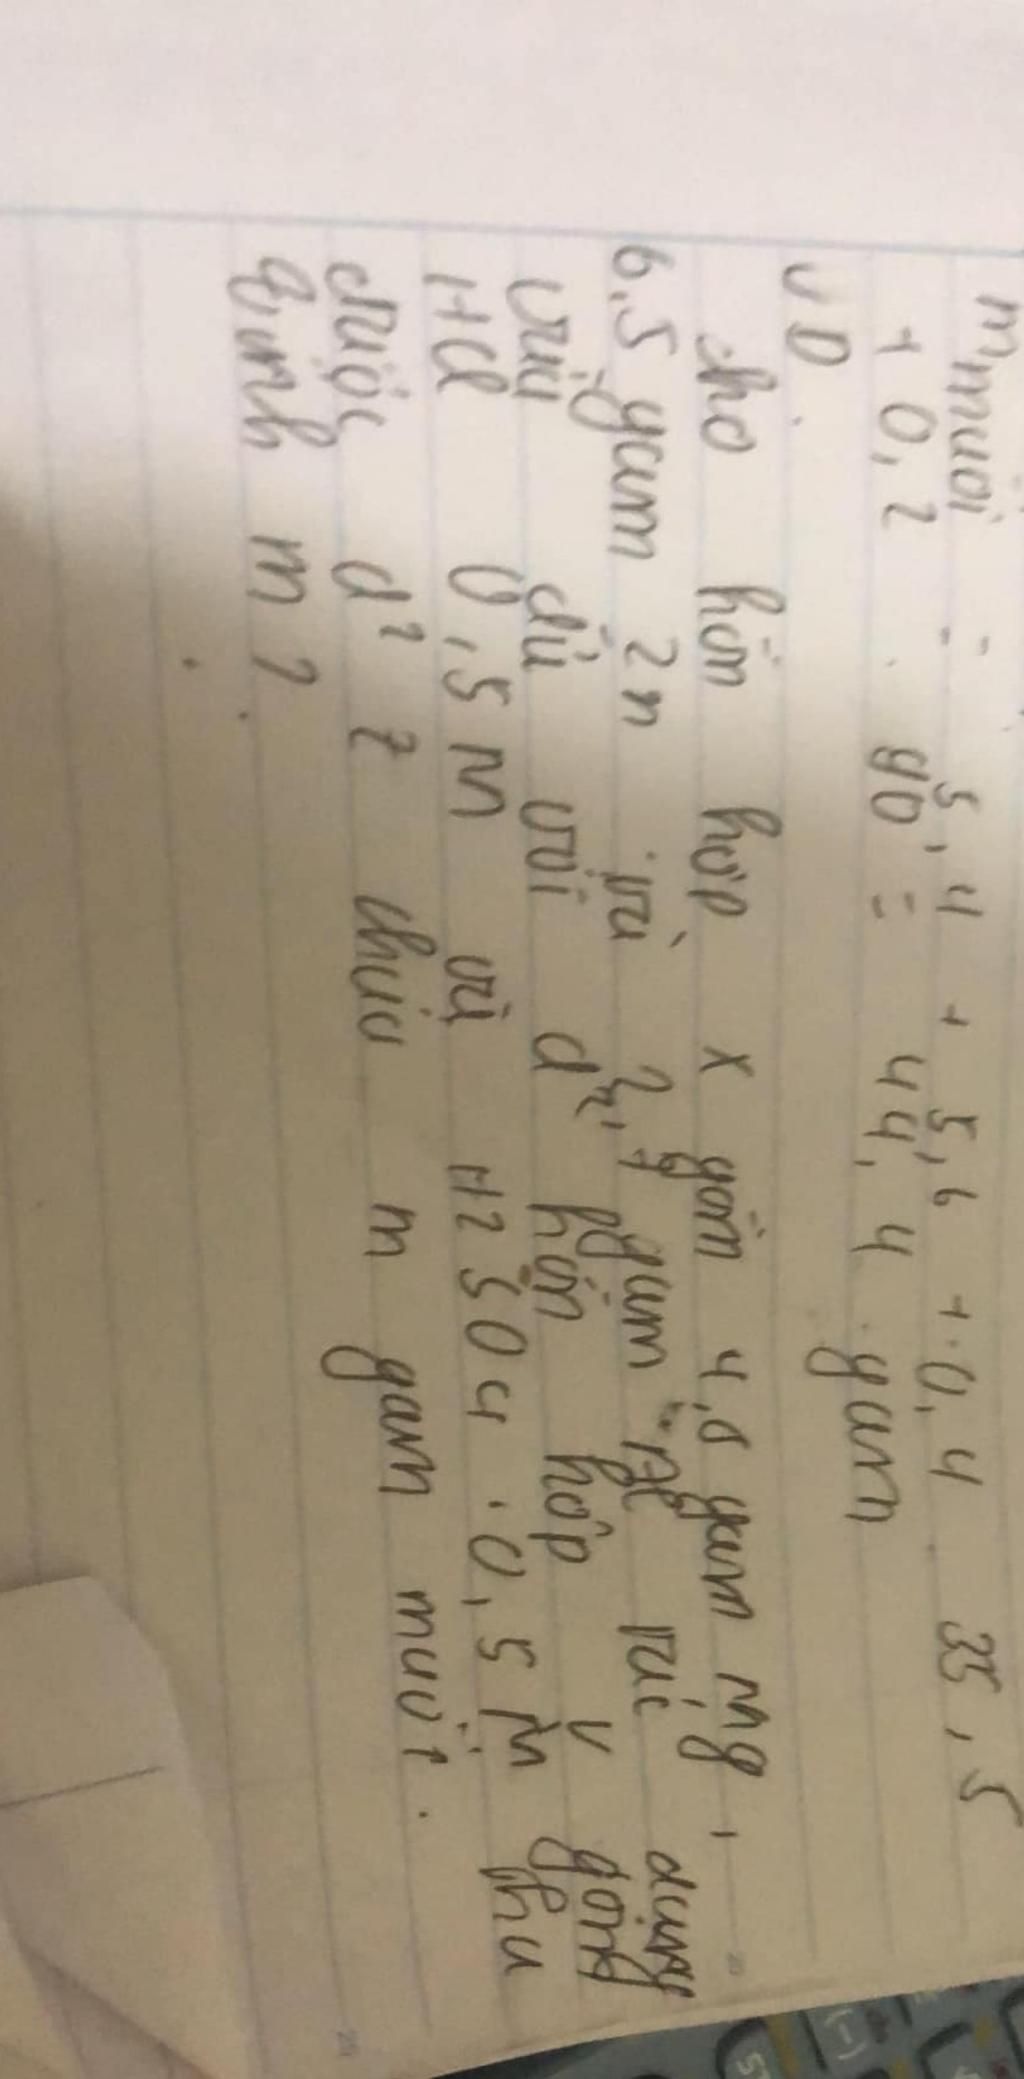 m muối = 5,4 + 5,6 + 0,4 35,5
+ 0,2 . 96 = 44,4 gam
VD.
cho hỗn hợp X gồm 4,8 gam Mg,
6,5 gam Zn và 2,7 gam Al tác dụng
vừa đủ với d² hỗn hợp Y gồm
HCl 0,5 M và H2SO4 0,5 M thu
được d² Z chứa m gam muối.
Tính m?